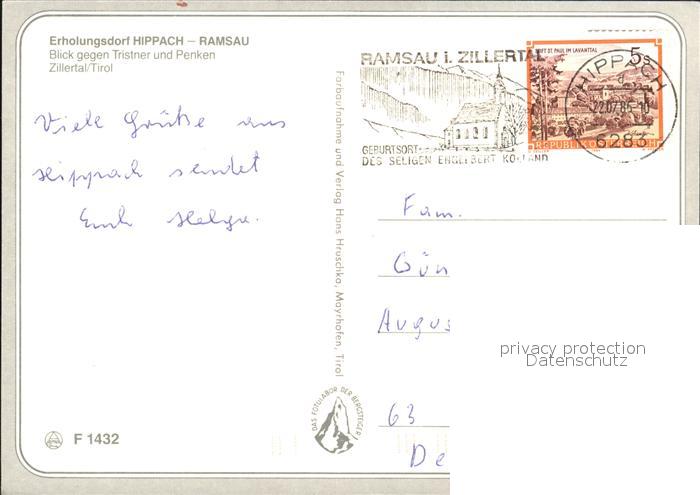 Erholungsdorf HIPPACH – RAMSAU
Blick gegen Tristner und Penken
Zillertal/Tirol
Viele Grüße aus
Hippach sendet
Euch Helga.
F 1432
Farbaufnahme und Verlag Hans Hruschka, Mayrhofen, Tirol
DAS FOTOLABOR DER BERGSTEIGER
RAMSAU i. ZILLERTAL
GEBURTSORT
DES SELIGEN ENGELBERT KOLLAND
STIFT ST. PAUL IM LAVANTTAL
5s
REPUBLIK
HIPPACH
6283
Fam.
Gün
Augus
63
De
privacy protection
Datenschutz